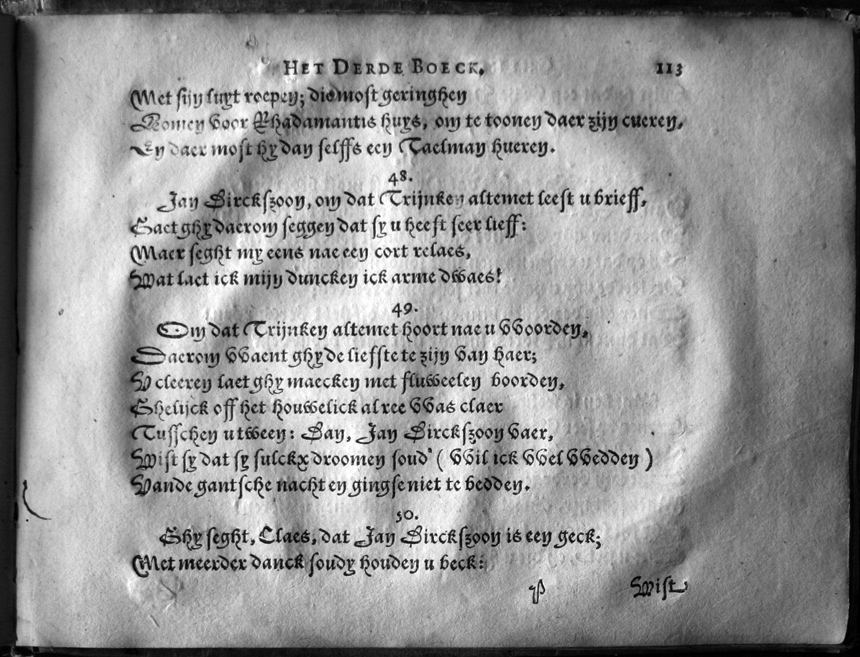 HET DERDE BOECK. 113
Met sijn luyt roepen; die most geringhen
Komen voor Rhadamantis huys, om te toonen daer zijn cueren,
En daer most hy dan selffs een Taelman hueren.
48.
Jan Dirckszoon, om dat Trijnken altemet leest u brieff,
Gaet ghy daerom seggen dat sy u heeft seer lieff:
Maer seght my eens nae een cort relaes,
Wat laet ick mijn duncken ick arme dwaes!
49.
Om dat Trijnken altemet hoort nae u VVoorden,
Daerom VVaent ghy de liefste te zijn van haer;
V cleeren laet ghy maecken met fluweelen boorden,
Ghelijck off het houwelick alree VVas claer
Tusschen u tween: Dan, Jan Dirckszoon vaer,
Wist sy dat sy sulckx droomen soud' (VVil ick VVel VVedden)
Vande gantsche nacht en gingse niet te bedden.
50.
Ghy seght, Claes, dat Jan Dirckszoon is een geck;
Met meerder danck soudy houden u beck:
P Wist